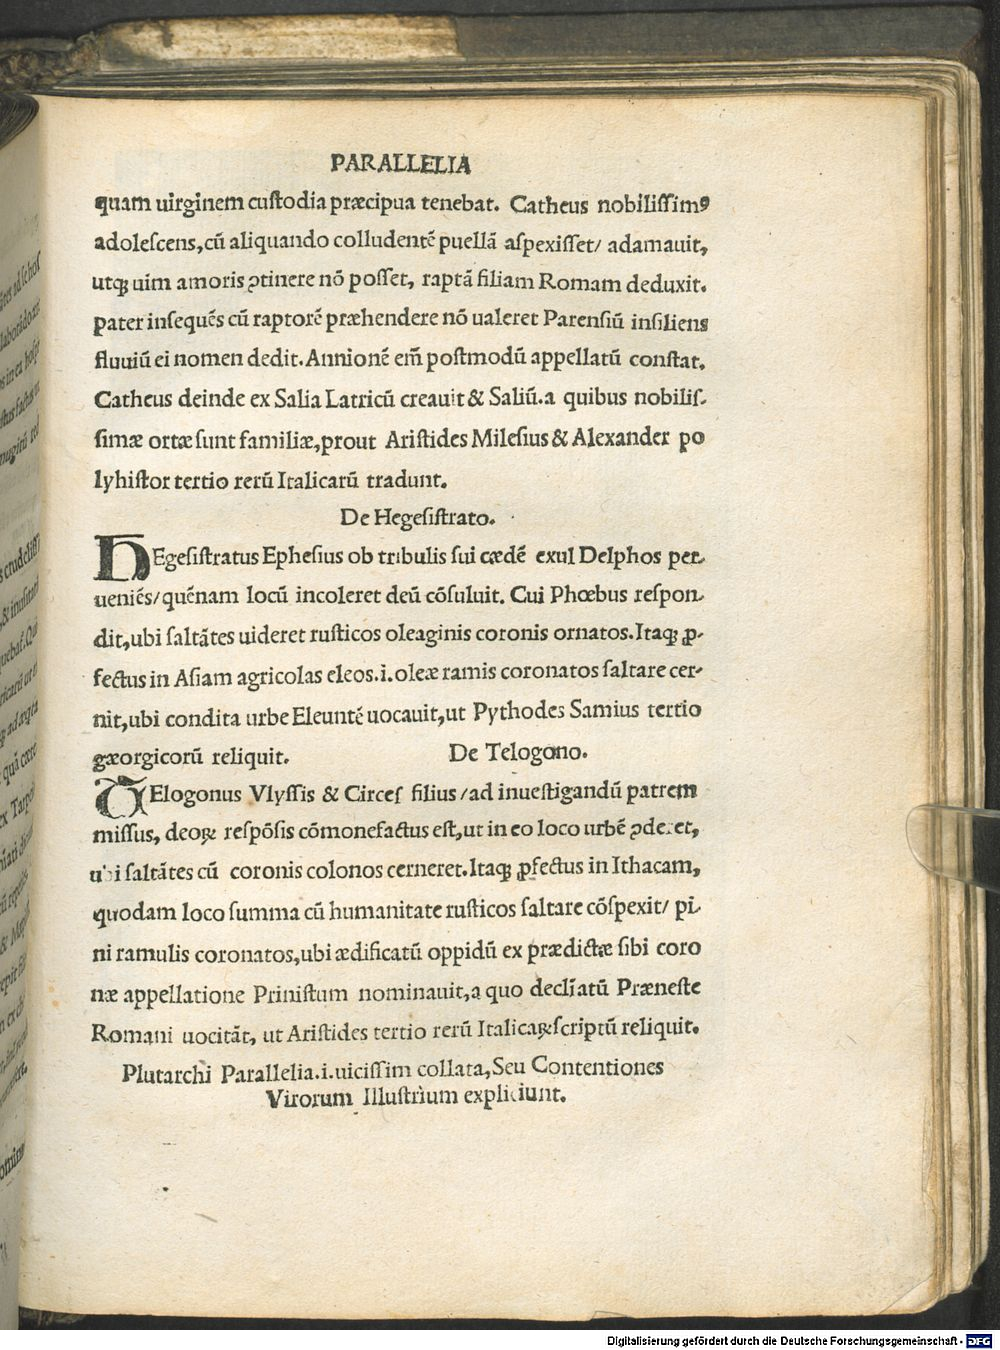 PARALLELIA
quam uirginem custodia præcipua tenebat. Catheus nobilissimꝰ
adolescens,cū aliquando colludentē puellā aspexisset/ adamauit,
utqꝫ uim amoris ꝯtinere nō posset, raptā filiam Romam deduxit.
pater insequēs cū raptorē præhendere nō ualeret Parensiū insiliens
fluuiū ei nomen dedit. Annionē em̄ postmodū appellatū constat.
Catheus deinde ex Salia Latricū creauit & Saliū.a quibus nobilis-
simæ ortæ sunt familiæ,prout Aristides Milesius & Alexander po
lyhistor tertio rerū Italicarū tradunt.
De Hegesistrato.
HEgesistratus Ephesius ob tribulis sui cædē exul Delphos per-
ueniēs/ quēnam locū incoleret deū cōsuluit. Cui Phœbus respon-
dit,ubi saltātes uideret rusticos oleaginis coronis ornatos. Itaqꝫ ꝓ-
fectus in Asiam agricolas eleos.i.oleæ ramis coronatos saltare cer-
nit,ubi condita urbe Eleuntē uocauit,ut Pythodes Samius tertio
gæorgicorū reliquit. De Telogono.
TElogonus Vlyssis & Circes filius/ad inuestigandū patrem
missus, deoꝝ respōsis cōmonefactus est,ut in eo loco urbē ꝯderet,
ubi saltātes cū coronis colonos cerneret. Itaqꝫ ꝓfectus in Ithacam,
quodam loco summa cū humanitate rusticos saltare cōspexit/ pi-
ni ramulis coronatos,ubi ædificatū oppidū ex prædictæ sibi coro
næ appellatione Prinistum nominauit,a quo decliatū Præneste
Romani uocitāt, ut Aristides tertio rerū Italicaꝝ scriptū reliquit.
Plutarchi Parallelia.i.uicissim collata,Seu Contentiones
Virorum Illustrium expliciunt.
Digitalisierung gefördert durch die Deutsche Forschungsgemeinschaft - DFG